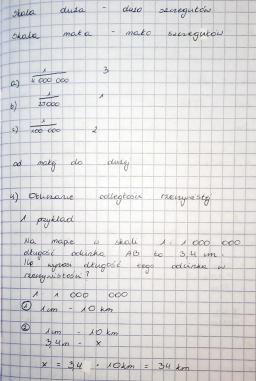 skala duża - dużo szczegułów
skala mała - mało szczegułów
a) 1/4 000 000 3
b) 1/25000 1
c) 1/100 000 2
od małej do dużej
4) Obliczanie odległości rzeczywistej
1 przykład
Na mapie w skali 1 : 1 000 000
długość odcinka AB to 3,4 cm.
Ile wynosi długość tego odcinka w
rzeczywistości?
1 : 1 000 000
① 1cm - 10 km
② 1cm - 10 km
3,4cm - x
x = 3,4 · 10km = 34 km